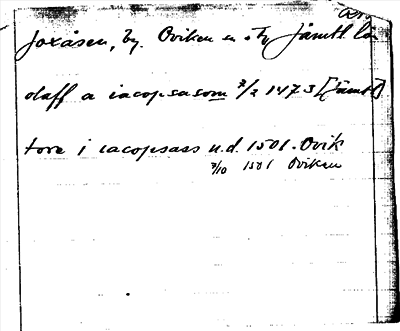 Joxåsen, by. Oviken sn o tg Jämtl. län
olaff a iacopsasom 7/2 1473 [Jämtl]
tore i iacopsass u.d. 1501. Ovik
3/10 1501 Oviken